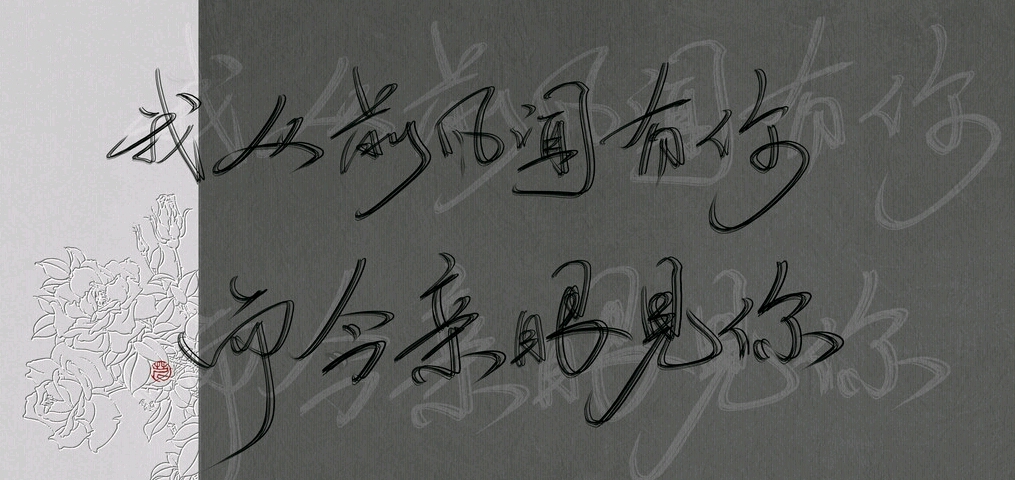 我从前风闻有你
而今亲眼见你